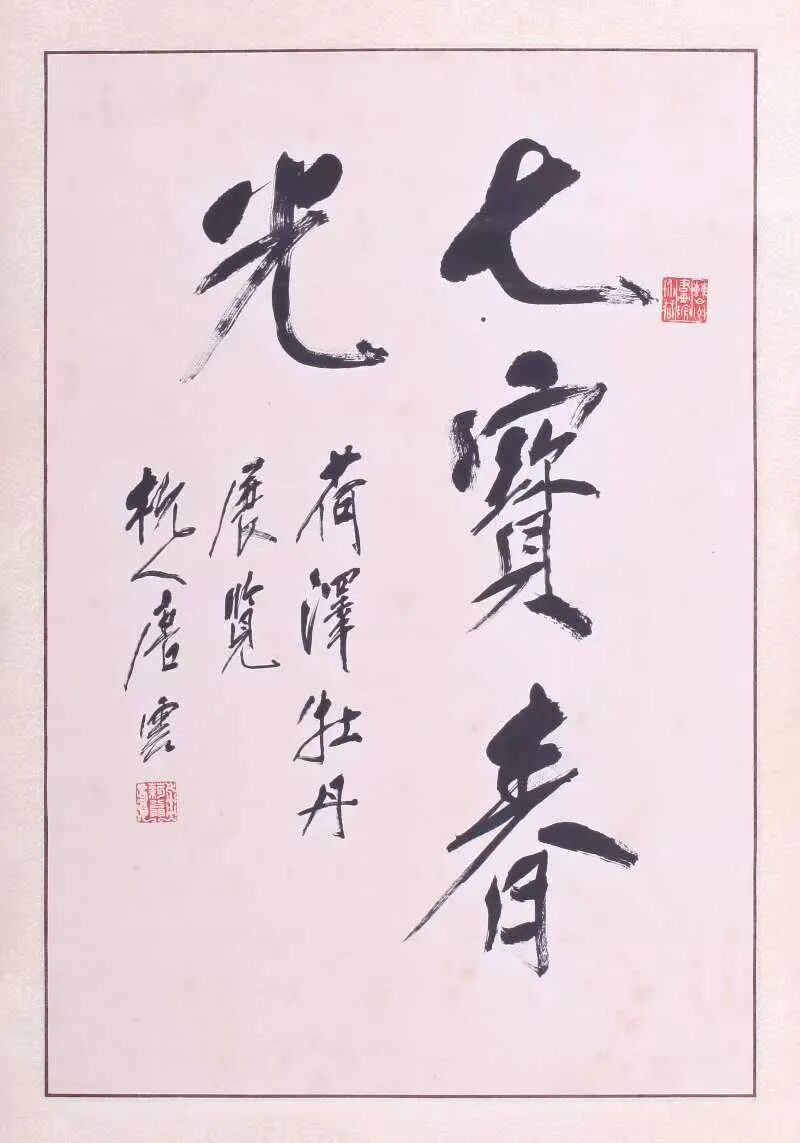 七寶春
光
荷澤牡丹
展覽
杭人唐雲